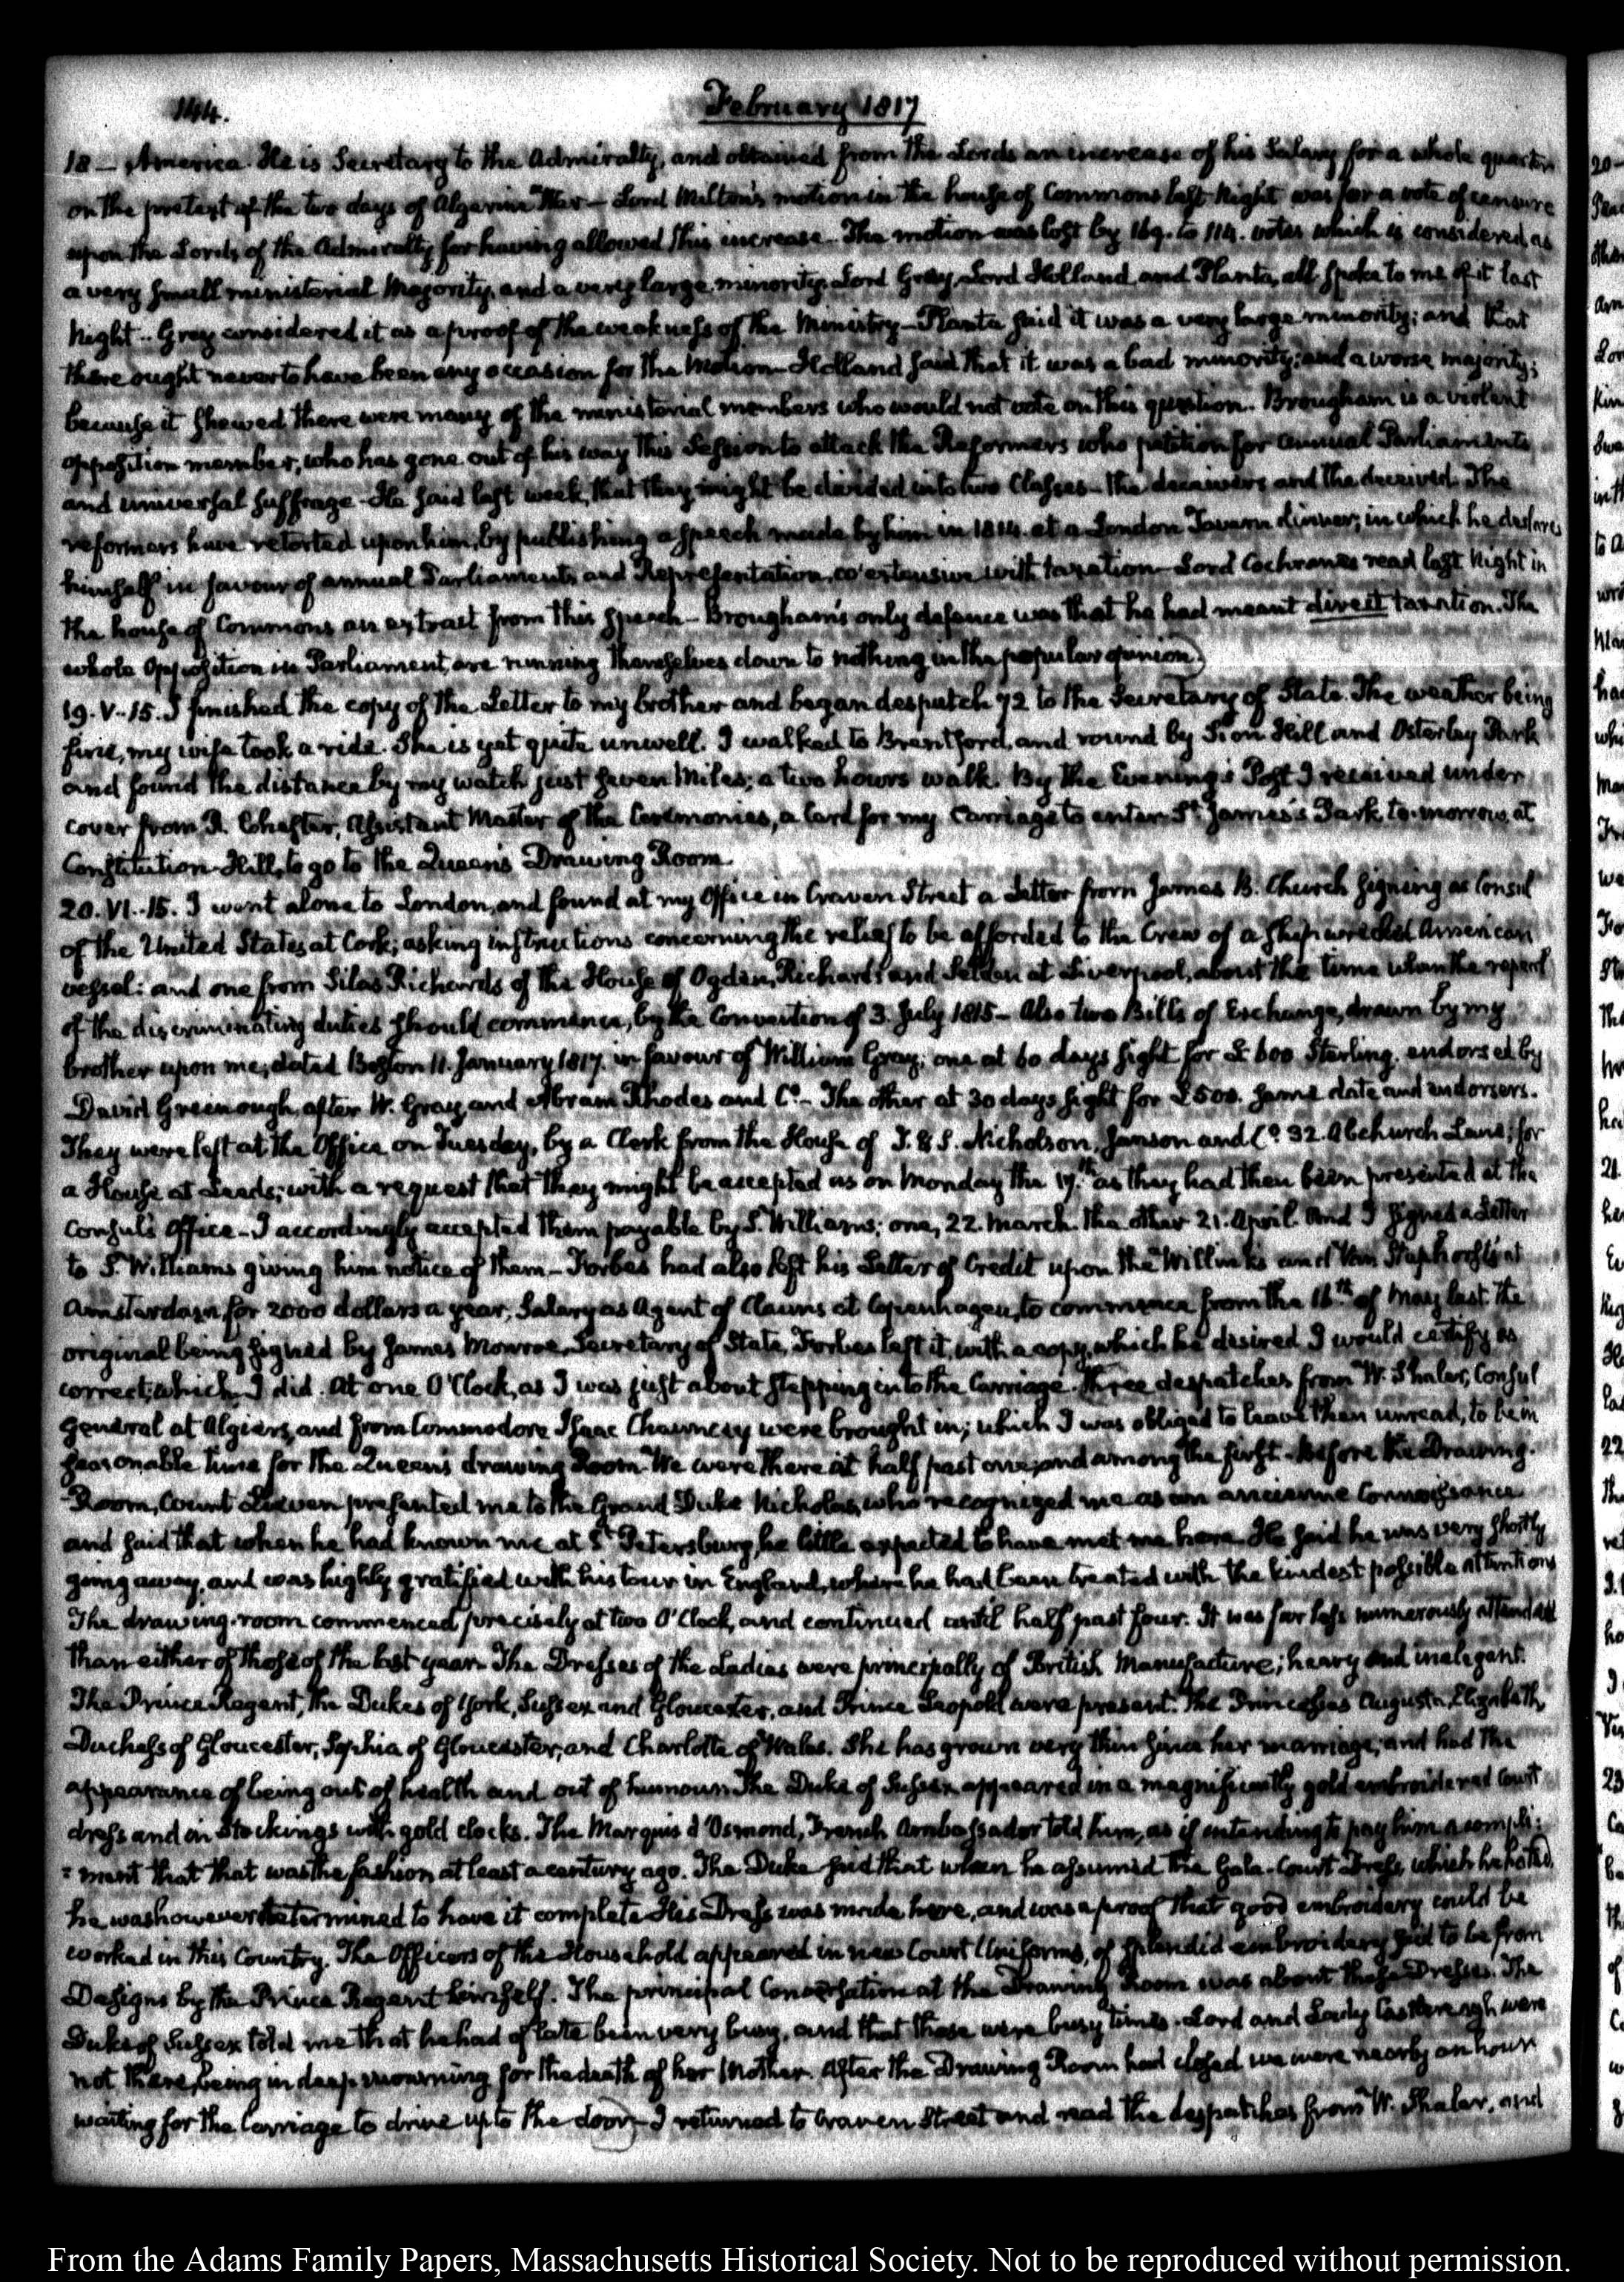 144.
February 1817
18 — America. He is Secretary to the Admiralty, and obtained from the Lords an increase of his Salary for a whole quarter
on the pretext of the two days of Algerine War — Lord Milton's motion in the house of Commons last Night was for a vote of censure
upon the Lords of the Admiralty for having allowed this increase. The motion was lost by 169. to 114. votes which is considered as
a very small ministerial Majority, and a very large minority. Lord Grey, Lord Holland and Planta, all spoke to me of it last
Night.. Grey considered it as a proof of the weakness of the Ministry — Planta said it was a very large minority; and that
there ought never to have been any occasion for the Motion — Holland said that it was a bad minority; and a worse majority;
because it shewed there were many of the ministerial members who would not vote on this question. Brougham is a violent
opposition member, who has gone out of his way this Session to attack the Reformers who petition for annual Parliaments
and universal suffrage — He said last week, that they might be divided into two Classes — the deceivers and the deceived. The
reformers have retorted upon him, by publishing a speech made by him in 1814. at a London Tavern dinner; in which he declares
himself in favour of annual Parliaments and Representation, co'extensive with taxation — Lord Cochrane read last Night in
the house of Commons an extract from this speech — Brougham's only defence was that he had meant direct taxation. The
whole Opposition in Parliament, are running themselves down to nothing in the popular opinion.
19. V..15. I finished the copy of the Letter to my brother and began despatch 72 to the Secretary of State. The weather being
fine, my wife took a ride. She is yet quite unwell. I walked to Brentford, and round by Sion Hill and Osterley Park
and found the distance by my watch just seven Miles; a two hours walk. By the Evening's Post I received under
cover from R. Chester, Assistant Master of the Ceremonies, a Card for my Carriage to enter St. James's Park, to-morrow, at
Constitution-Hill, to go to the Queen's Drawing Room.
20. VI..15. I went alone to London, and found at my Office in Craven Street a Letter from James B. Church signing as Consul
of the United States, at Cork; asking instructions concerning the relief to be afforded to the Crew of a shipwrecked American
vessel: and one from Silas Richards of the House of Ogden, Richards and Selden at Liverpool, about the time when the repeal
of the discriminating duties should commence, by the Convention of 3. July 1815 — Also two Bills of Exchange, drawn by my
brother upon me, dated Boston 11. January 1817. in favour of William Gray; one at 60 days sight for £600 Sterling. endorsed by
David Greenough, after W. Gray, and Abram Rhodes and Co. — The other at 30 days sight for £500. same date and endorsers.
They were left at the Office on Tuesday, by a Clerk from the House of T. & S. Nicholson, Janson and Co. 32. Abchurch Lane; for
a House at Leeds; with a request that they might be accepted as on Monday the 17.th as they had then been presented at the
Consul's Office — I accordingly accepted them payable by S. Williams; one, 22. March. the other 21. April. And I signed a Letter
to S. Williams giving him notice of them — Forbes had also left his Letter of Credit upon the Willinks and Van Staphorsts at
Amsterdam, for 2000 dollars a year, Salary as Agent of Claims at Copenhagen, to commence from the 16th of May last the
original being signed by James Monroe, Secretary of State, Forbes left it, with a copy, which he desired I would certify as
correct; which I did. At one O'Clock, as I was just about stepping into the Carriage. Three despatches from W. Shaler, Consul
General at Algiers, and from Commodore Isaac Chauncey were brought in; which I was obliged to leave then unread, to be in
seasonable time for the Queen's drawing Room. We were there at half past one; and among the first — Before the Drawing-
Room, Count Lieven presented me to the Grand Duke Nicholas, who recognized me as an ancienne Connoissance
and said that when he had known me at St. Petersburg, he little expected to have met me here. He said he was very shortly
going away, and was highly gratified with his tour in England, where he had been treated with the kindest possible attentions
The drawing-room commenced precisely at two O'Clock, and continued until half past four. It was far less numerously attended
than either of those of the last year. The Dresses of the Ladies were principally of British Manufacture; heavy and inelegant.
The Prince Regent, the Dukes of York, Sussex and Gloucester, and Prince Leopold were present. The Princesses Augusta, Elizabeth,
Duchess of Gloucester, Sophia of Gloucester, and Charlotte of Wales. She has grown very thin since her marriage, and had the
appearance of being out of health and out of humour. The Duke of Sussex appeared in a magnificently gold-embroidered Court
dress and in Stockings with gold clocks. The Marquis d'Osmond, French Ambassador told him, as if intending to pay him a compli=
=ment that that was the fashion at least a century ago. The Duke said that when he assumed the Gala-Court Dress, which he hated,
he was however determined to have it complete. His Dress was made here, and was a proof that good embroidery could be
worked in this Country. The Officers of the Household appeared in new Court Uniforms, of splendid embroidery said to be from
Designs by the Prince Regent himself. The principal Conversation at the Drawing Room was about these Dresses. The
Duke of Sussex told me that he had of late been very busy, and that these were busy times. Lord and Lady Castlereagh were
not there, being in deep mourning for the death of her Mother. After the Drawing Room had closed we were nearly an hour
waiting for the Carriage to drive up to the door — I returned to Craven Street and read the despatches from W. Shaler, and
From the Adams Family Papers, Massachusetts Historical Society. Not to be reproduced without permission.